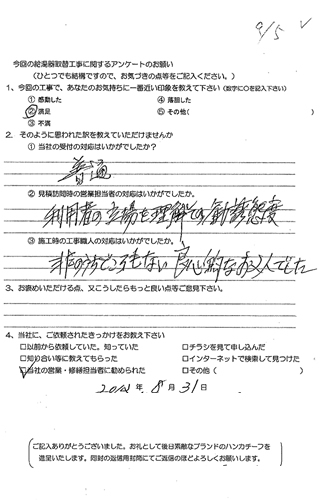 9/5 ✓
今回の給湯器取替工事に関するアンケートのお願い
(ひとつでも結構ですので、お気づきの点等をご記入ください。)
1、今回の工事で、あなたのお気持ちに一番近い印象を教えて下さい(数字に○を記入下さい)
① 感動した ④ 落胆した
② 満足 ⑤ その他( )
③ 不満
2. そのように思われた訳を教えていただけませんか
① 当社の受付の対応はいかがでしたか?
普通
② 見積訪問時の営業担当者の対応はいかがでしたか。
利用者の立場を理解しての勧誘態度
③ 施工時の工事職人の対応はいかがでしたか。
非のうちどころもない 良心的なお人でした
3、お褒めいただける点、又こうしたらもっと良い点等ご意見下さい。
4、当社に、ご依頼されたきっかけをお教え下さい
□以前から依頼していた。知っていた □チラシを見て申し込んだ
□知り合い等に教えてもらった □インターネットで検索して見つけた
☑当社の営業・修繕担当者に勧められた □その他( )
2012 年 8 月 31 日
ご記入ありがとうございました。お礼として後日素敵なブランドのハンカチーフを
進呈いたします。同封の返信用封筒にてご返信のほどよろしくお願いします。